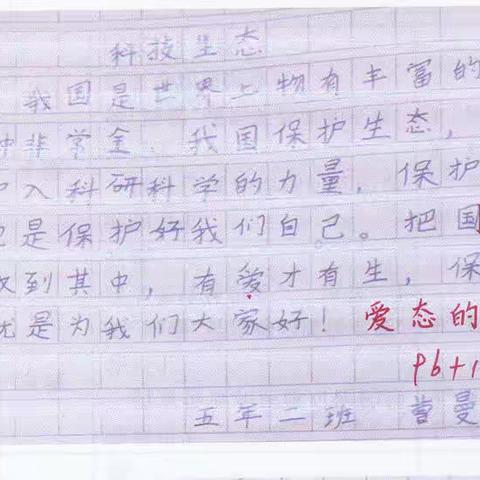 科技生态
我国是世界上物有丰富的
非常金,我国保护生态,
入科研科学的力量,保护
是保护好我们自己。把国
到其中,有爱才有生,保
是为我们大家好!爱态的
96+1
五年二班 曹曼